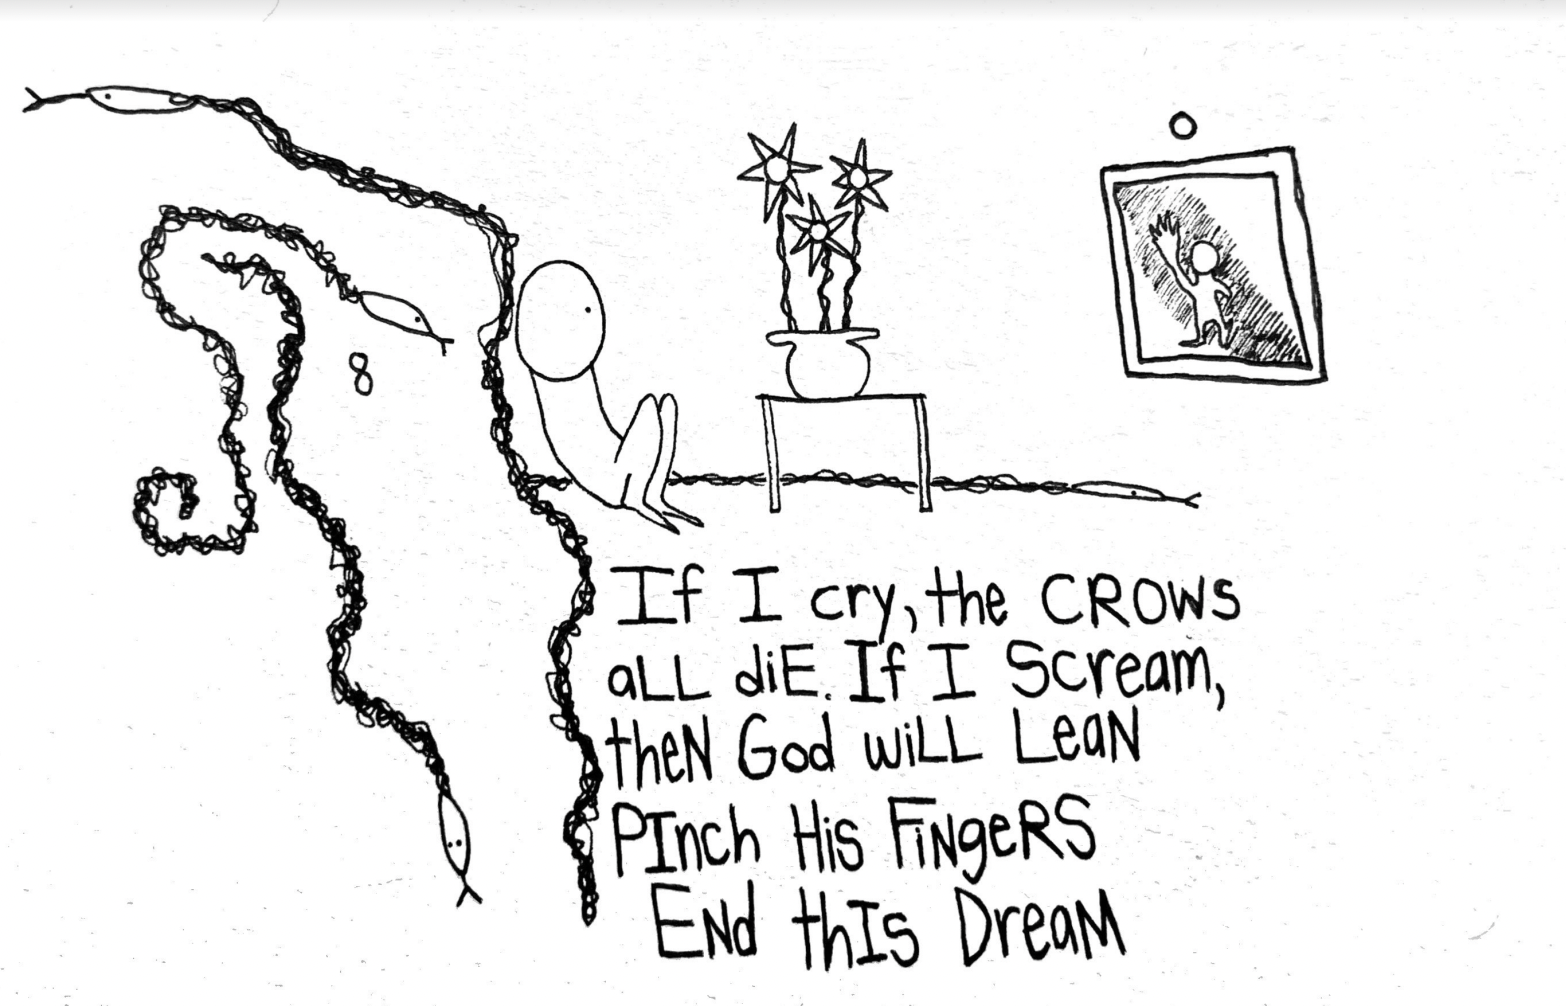 8
If I cry, the CROWS
aLL diE. If I Scream,
theN God wiLL LeaN
PInch His FiNgeRS
ENd thIs DreaM